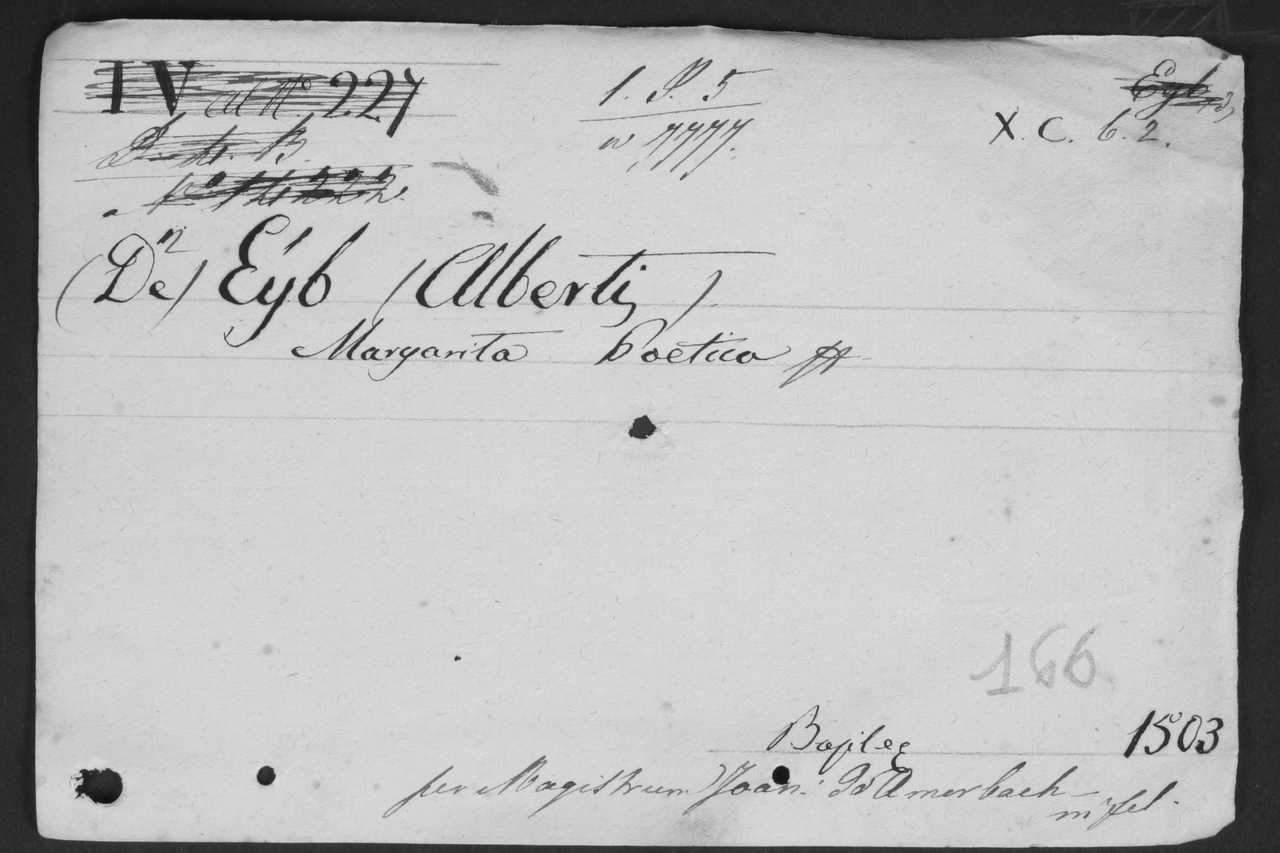 IV 227
1. P. 5
7777.
Eyb
X. C. 6. 2.
(De) Eyb (Alberti)
Margarita Poetica
166
Basileę 1503
per Magistrum Joan: Amerbach